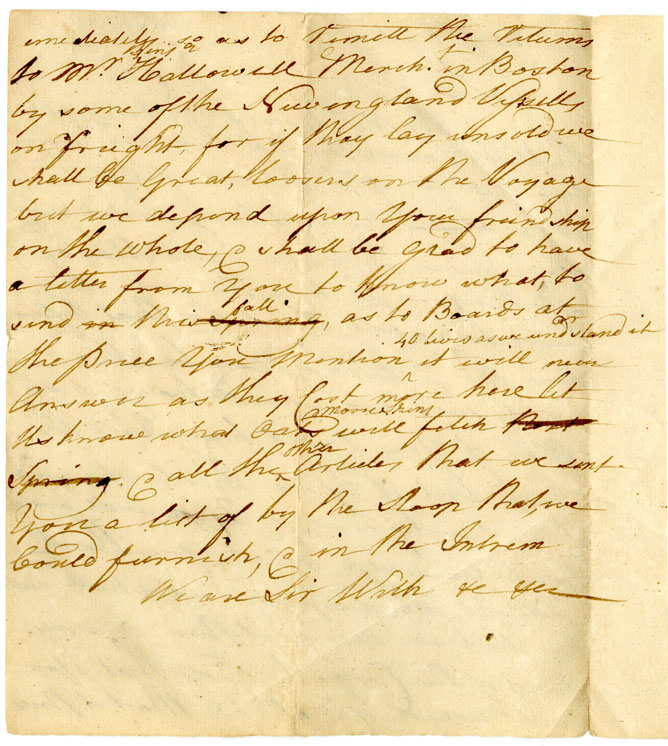 imediately so as to remitt the returns
to Mr. Benja Hallowell Mercht. in Boston
by some of the Newengland Vessells
on freight, for if they lay unsold we
shall be Great, loosers on the Voyage
but we depend upon Your friendship
on the whole, & shall be glad to have
a letter from You to know what, to
send in this Spring, fall as to Boards at
40 livers as we undstand it
the price You Mention it will never
Answer as they Cost more here let
Us know what Oats moose skins will fetch Next
Spring. & all the other Articles that we sent
You a list of by the Sloop that, we
Could furnish, & in the Intrem
We are Sir With &c &c